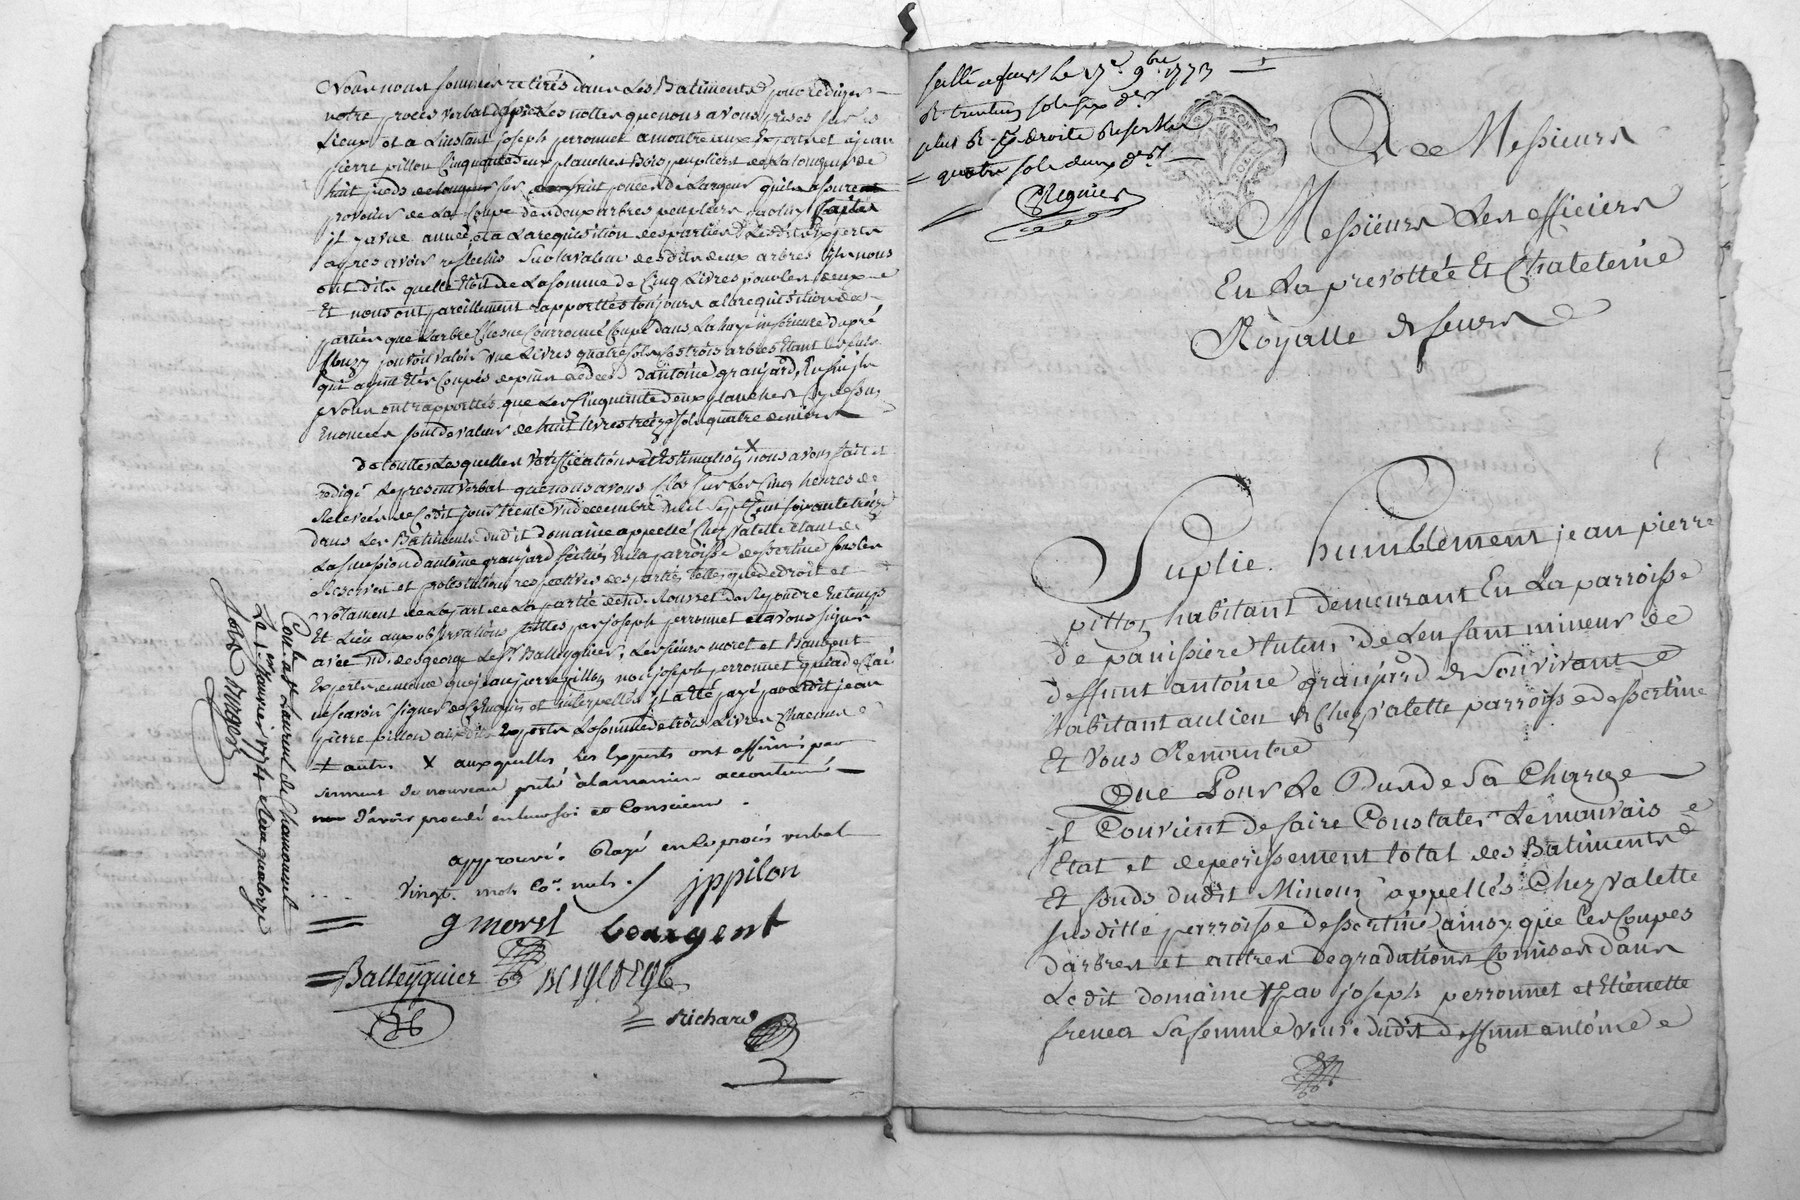 Nous nous sommes retirés dans Les Batiments pour rédiger
notre procès verbal d'après Les nottes que nous avons prises sur les
Lieux et a Linstant joseph perronnet a montré aux Experts et a jean
pierre pillon Cinquante deux planches Bois peupliers de La longueur de
huit pieds sur huit pouces de Largeur quil assure
provenir de La Coupe des deux arbres peupliers
il y a une année, et a La requisition des parties Lesdits Experts
apres avoir reflechis Sur La valeur desdits deux arbres ils nous
ont dits quelle Etoit de La somme de Cinq Livres pour les deux
Et nous ont pareillement rapporttés toujours a la requisition des
parties que Larbre Chesne Couronné Coupé dans La haye inferieure du pré
pouvoit valoir une Livres quatre sols Ces trois arbres Etant Les seuls
qui ayent Etés Coupés depuis Le deces Dantoine granjard, Enfin ils
Nous ont rapporttés que Les Cinquante deux planches Cy dessus
Enoncées sont de valeur de huit livres treize sols quatre deniers
De touttes Lesquelles Veriffications et Estimations X nous avons fait et
redigé Le present verbal que nous avons Clos sur Les Cinq heures de
Relevée de Ce dit jour trente un decembre mil sept Cent soixante treize
dans Les Batiments dudit domaine appellé Chez Valette Etant de
La succession dantoine granjard scitués En La parroisse dessertine sous Les
Reserves et protestations respectives des parties telles que de droit et
notament de La part de La partie de Md. Rousset De Repondre En tems
Et Lieu aux observations faittes par joseph perronnet et avons signé
avec Md. desgeorge Le Sr. Balleyguier, Les sieurs moret et
Experts et jean pierre pillon non joseph perronnet qui a declaré
ne scavoir signer de Ce Enquis et interpellés il a été payé par ledit jean
pierre pillon auxdits Experts La somme de trois Livres Chacun
autre X auxquelles Les Experts ont affirmés par
serment de nouveau preté à la maniere accoutumée
d'avoir procedé en leur foi et Conscience.
approuvé. Rayé en Le procès verbal
vingt. mots Co. nuls.
jppilon
g moret
=Balleyguier
DESGEORGE
= Richard
Con.lé à St Laurent de Chamousset
Le janvier 1774 Reçu quatorze
sols
scellé a feurs le 17e. 9bre. 1773
R. trente sols six d.ers
plus R. pr. droite Reservé
quatre sols deux d.ers
Regnier
A Messieurs
Messieurs Les officiers
En La prevottée Et Chatelenie
Royalle de feurs
Suplie humblement jean pierre
pillon habitant demeurant En La parroisse
de panissiere tuteur de Lenfant mineur de
deffunt antoine granjard de son vivant
habitant au lieu de Chez Valette parroisse dessertine
Et Vous Remontre
Que Pour Le Dû de Sa Charge
il Convient de faire Constater Le mauvais
Etat et deperissement total des Batiments
Et fonds dudit Mineur appellés Chez Valette
susditte parroisse dessertine ainsy que Les Coupes
darbres et autres degradations Comises dans
Ledit domaine par joseph perronnet et Etienette
sa femme veuve dudit deffunt antoine